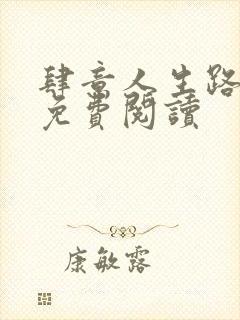 肆意人生路
免費閱讀
康敏露